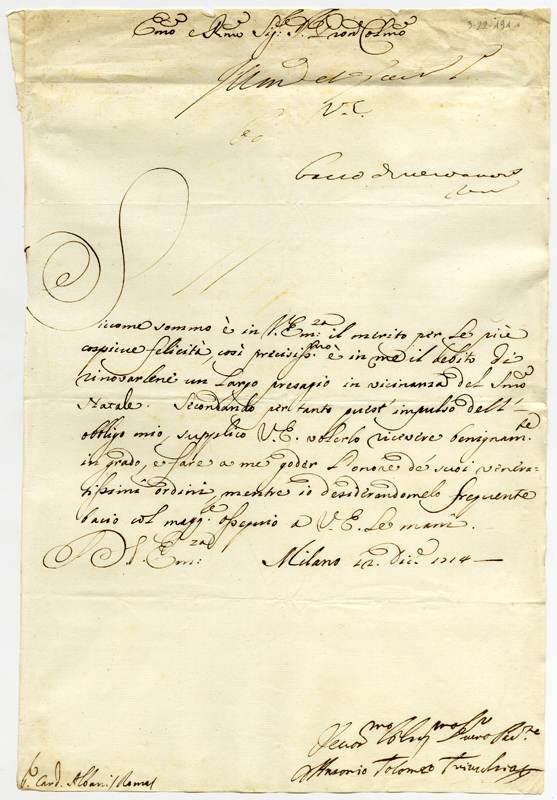 Em.o e R.mo Sig.re P.ron Col.mo
3-22-191
V.E.
Siccome sommo è in V. Em.za il merito per le più
cospicue felicità così precisiss.mo è in me il debito di
rinovarlene un largo presagio in vicinanza del S.mo
Natale. Secondando per tanto quest' impulso dell'
obbligo mio, supplico V.E. volerlo ricevere benignam.te
in grado, e fare a me goder l'onore de' suoi venera-
tissimi ordini, mentre io desiderandomelo frequente
bacio col magg.re ossequio a V.E. le mani.
D. V. Em.za Milano 12. Dic.e 1714
Ser.re
Antonio Tolomeo Trivulzio
S.r Card. Albani Roma